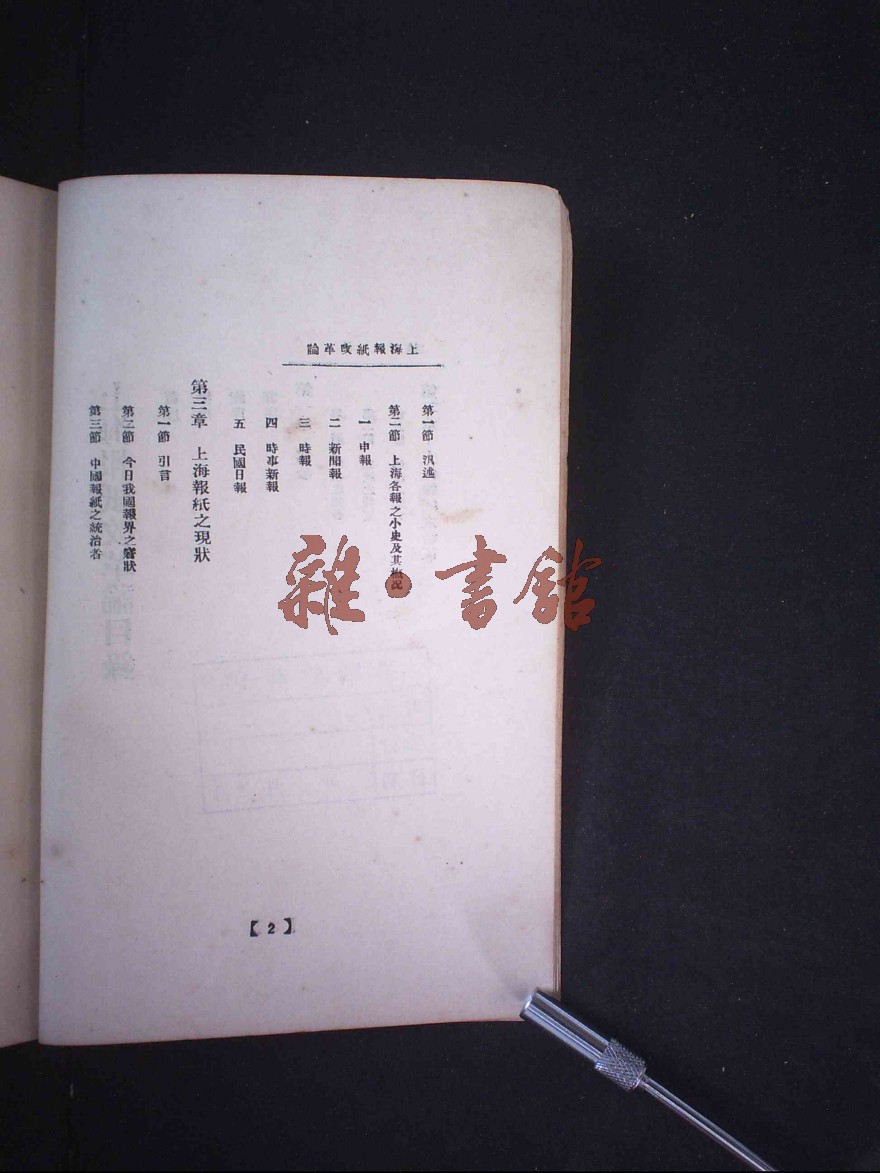 上海報紙改革論
第一節 汎述
第二節 上海各報之小史及其概況
一 申報
二 新聞報
三 時報
四 時事新報
五 民國日報
第三章 上海報紙之現狀
第一節 引言
第二節 今日我國報界之窘狀
第三節 中國報紙之統治者
【2】
雜·書館